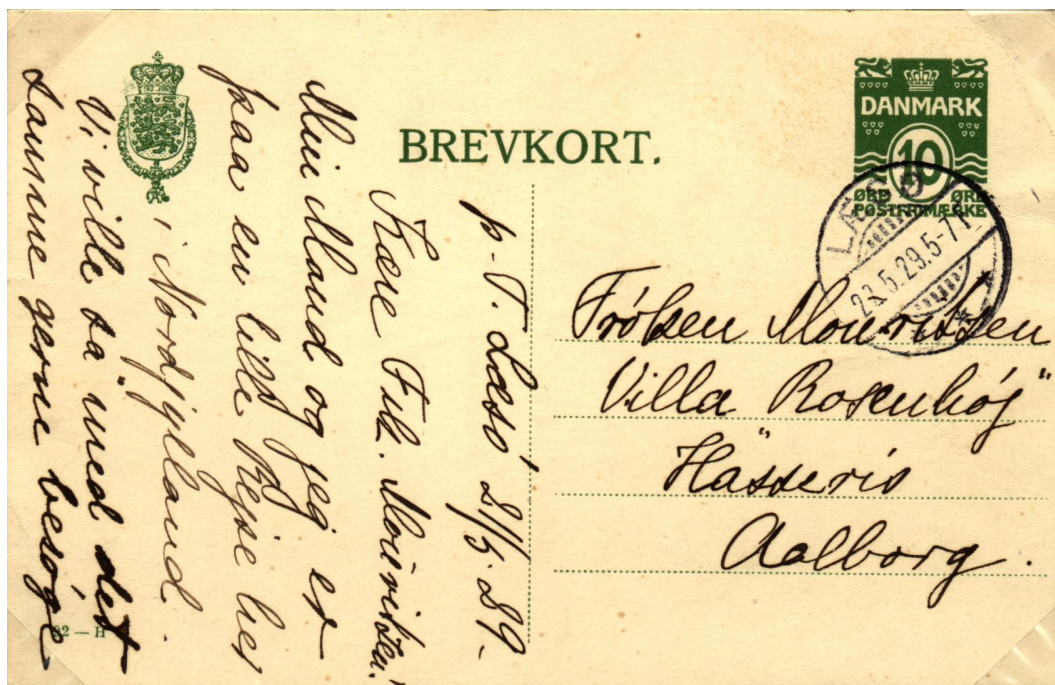 BREVKORT.
DANMARK
10
ØRE ØRE
POSTFRIMÆRKE
LÆSØ
23.5.29.5-7
Fröken Mouritsen
Villa Rosenhöj"
Hasseris
Aalborg.
p. T. Læsö 21/5. 29.
Kære Frk. Mouritsen!
Min Mand og jeg er
paa en lille Rejse her
i Nordjylland.
Vi ville sa' med det
samme gerne besöge
82 — H